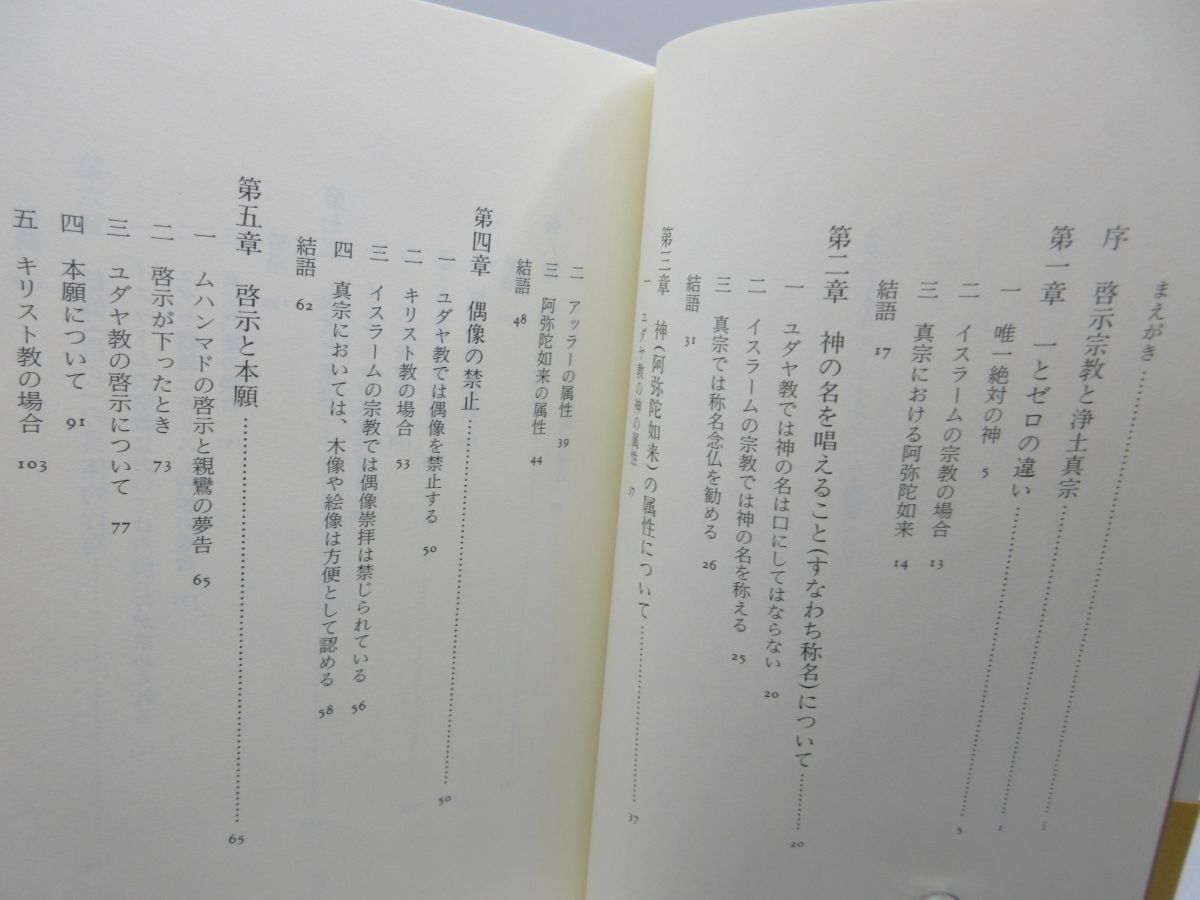 まえがき……………………
序　啓示宗教と浄土真宗……………………1
第一章　一とゼロの違い……………………5
一　唯一絶対の神　5
二　イスラームの宗教の場合　13
三　真宗における阿弥陀如来　14
結語　17
第二章　神の名を唱えること(すなわち称名)について………20
一　ユダヤ教では神の名は口にしてはならない　20
二　イスラームの宗教では神の名を称える　25
三　真宗では称名念仏を勧める　26
結語　31
第三章　神(阿弥陀如来)の属性について……………………37
一　ユダヤ教の神の属性　37
二　アッラーの属性　39
三　阿弥陀如来の属性　44
結語　48
第四章　偶像の禁止……………………50
一　ユダヤ教では偶像を禁止する　50
二　キリスト教の場合　53
三　イスラームの宗教では偶像崇拝は禁じられている　56
四　真宗においては、木像や絵像は方便として認める　58
結語　62
第五章　啓示と本願……………………65
一　ムハンマドの啓示と親鸞の夢告　65
二　啓示が下ったとき　73
三　ユダヤ教の啓示について　77
四　本願について　91
五　キリスト教の場合　103